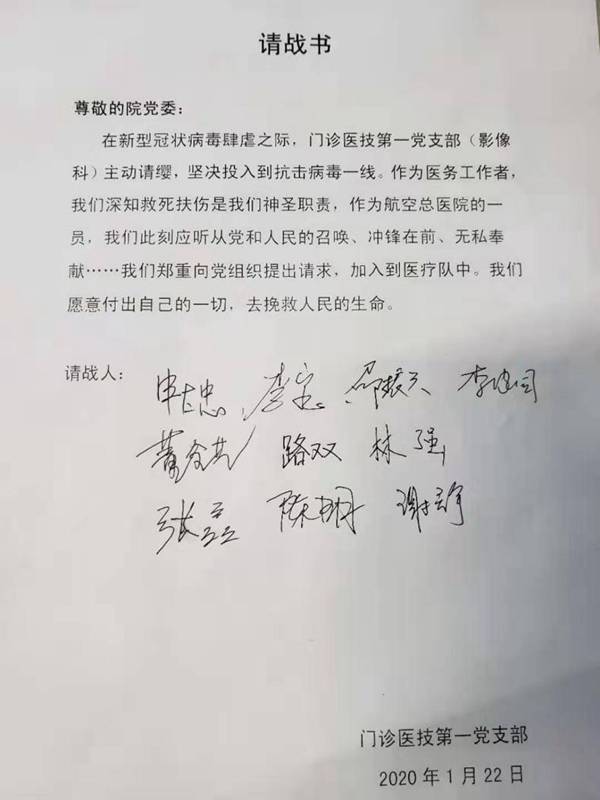 请战书
尊敬的院党委：
在新型冠状病毒肆虐之际，门诊医技第一党支部（影像
科）主动请缨，坚决投入到抗击病毒一线。作为医务工作者，
我们深知救死扶伤是我们神圣职责，作为航空总医院的一
员，我们此刻应听从党和人民的召唤、冲锋在前、无私奉
献……我们郑重向党组织提出请求，加入到医疗队中。我们
愿意付出自己的一切，去挽救人民的生命。
请战人：
李宝
路双 林强
张磊 陈明 谢静
门诊医技第一党支部
2020 年 1 月 22 日